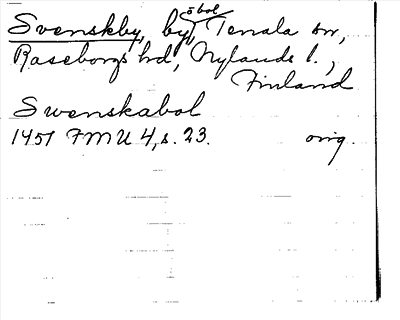 Svenskby, by, öbol Tenala sn,
Raseborgs hd, Nylands l.,
Finland
Swenskabol
1451 FMU 4, s. 23. orig.